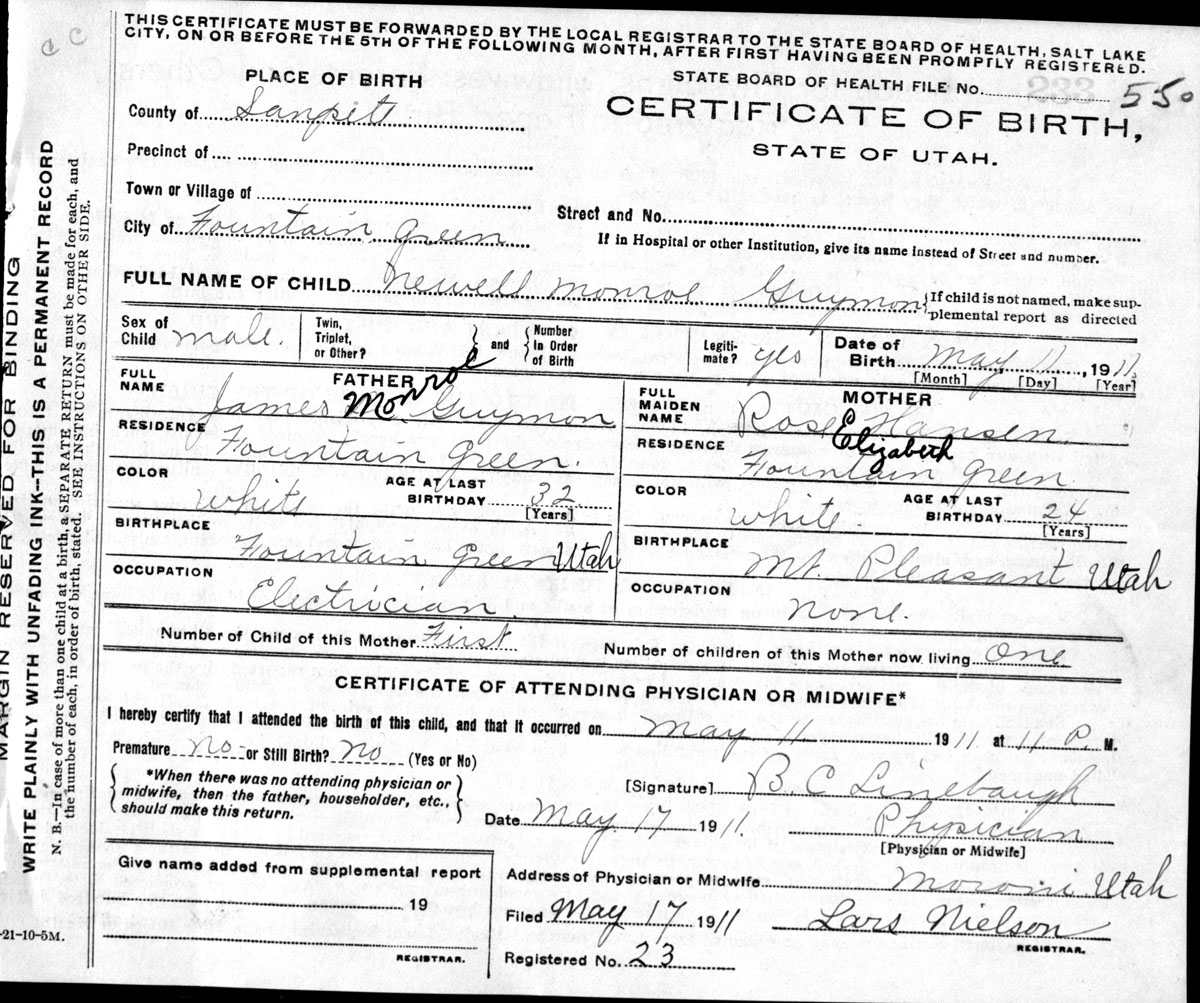 THIS CERTIFICATE MUST BE FORWARDED BY THE LOCAL REGISTRAR TO THE STATE BOARD OF HEALTH, SALT LAKE
CITY, ON OR BEFORE THE 5TH OF THE FOLLOWING MONTH, AFTER FIRST HAVING BEEN PROMPTLY REGISTERED.
C C
PLACE OF BIRTH
STATE BOARD OF HEALTH FILE No. 233 550
County of Sanpete
CERTIFICATE OF BIRTH,
STATE OF UTAH.
Precinct of
Town or Village of
Street and No.
City of Fountain Green
If in Hospital or other Institution, give its name instead of Street and number.
FULL NAME OF CHILD Newell Monroe Guymon {If child is not named, make sup-
plemental report as directed
Sex of Child male. Twin, Triplet, or Other? { and { Number In Order of Birth Legiti-mate? yes Date of Birth May 11, 1911.
[Month] [Day] [Year]
FATHER
FULL NAME James Monroe Guymon
RESIDENCE Fountain Green.
COLOR White AGE AT LAST BIRTHDAY 32
[Years]
BIRTHPLACE Fountain Green Utah
OCCUPATION Electrician
MOTHER
FULL MAIDEN NAME Rose Elizabeth Hansen.
RESIDENCE Fountain Green
COLOR White. AGE AT LAST BIRTHDAY 24
[Years]
BIRTHPLACE Mt. Pleasant Utah
OCCUPATION None.
Number of Child of this Mother First Number of children of this Mother now living One
CERTIFICATE OF ATTENDING PHYSICIAN OR MIDWIFE*
I hereby certify that I attended the birth of this child, and that it occurred on May 11 1911 at 11 P. M.
Premature No or Still Birth? No (Yes or No)
*When there was no attending physician or
midwife, then the father, householder, etc.,
should make this return.
[Signature] B. C Linebaugh
Date May 17 1911 Physician
[Physician or Midwife]
Give name added from supplemental report
19
REGISTRAR.
Address of Physician or Midwife Moroni Utah
Filed May 17 1911 Lars Nielson
REGISTRAR.
Registered No. 23
MARGIN RESERVED FOR BINDING
WRITE PLAINLY WITH UNFADING INK--THIS IS A PERMANENT RECORD
N. B.--In case of more than one child at a birth, a SEPARATE RETURN must be made for each, and
the number of each, in order of birth, stated. SEE INSTRUCTIONS ON OTHER SIDE.
-21-10-5M.